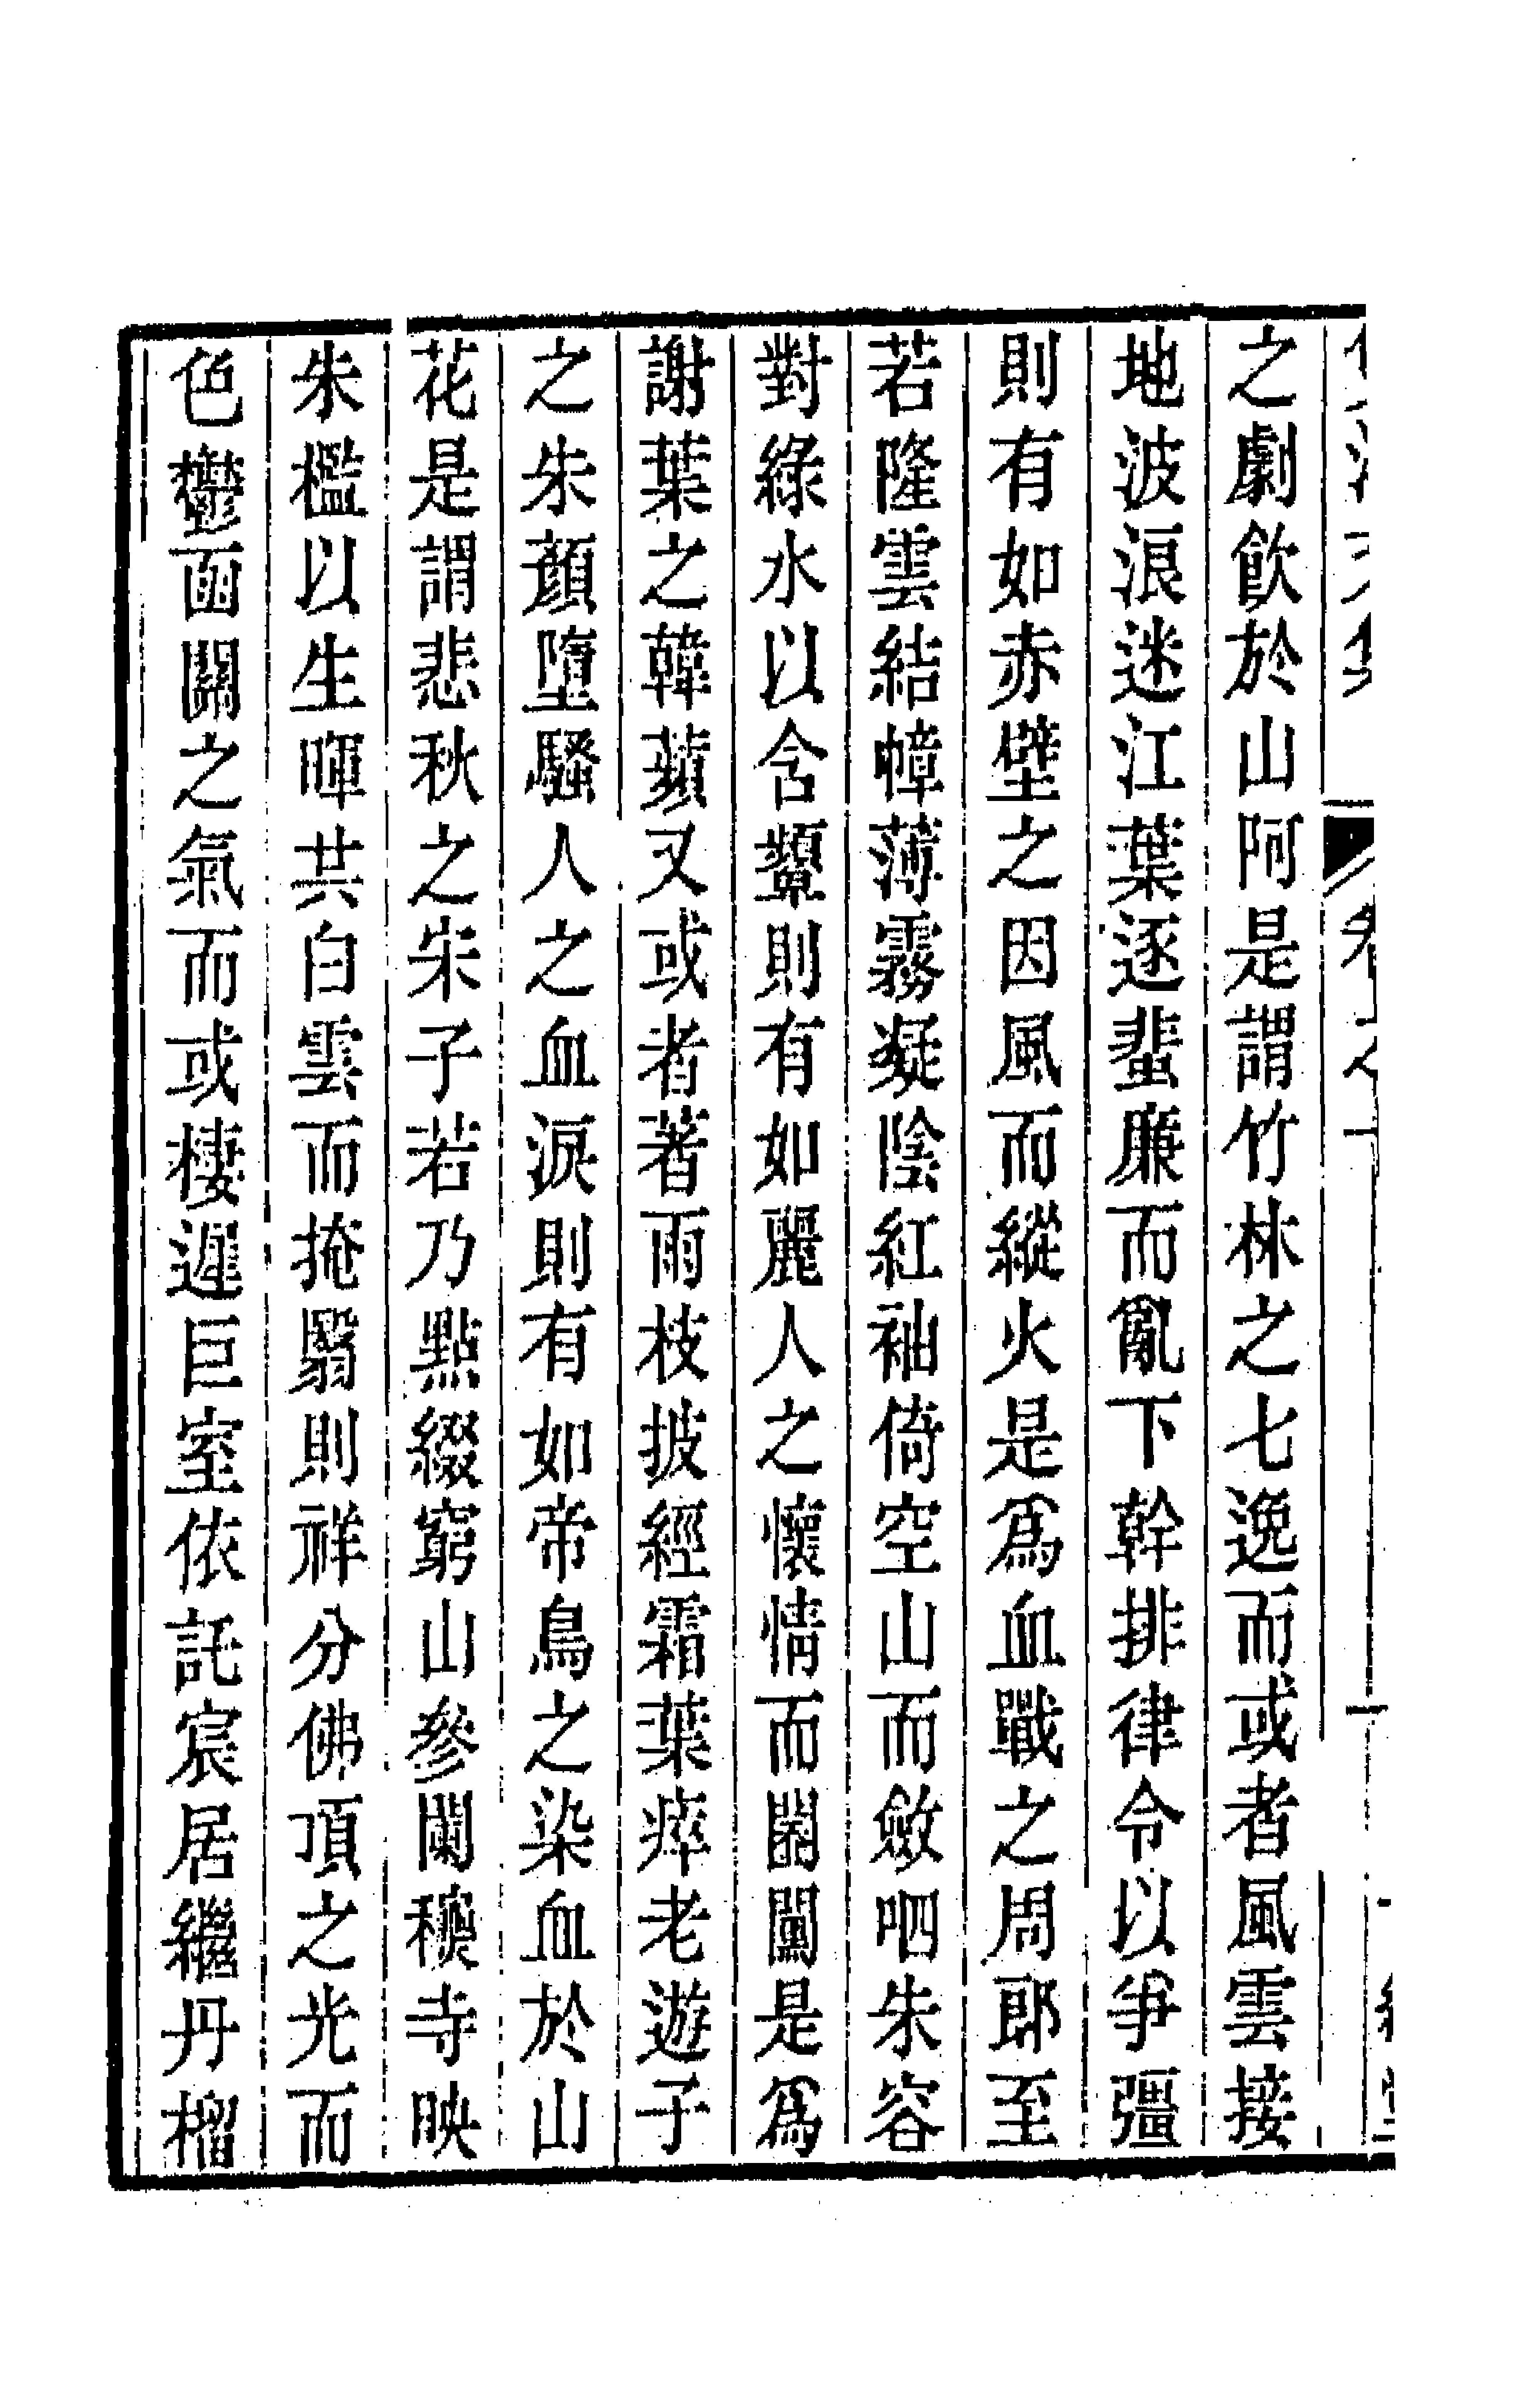 之劇飲於山阿是謂竹林之七逸而或者風雲接
地波浪迷江葉逐蜚廉而亂下幹排律令以爭彊
則有如赤壁之因風而縱火是為血戰之周郎至
若隆雲結幛薄霧凝陰紅袖倚空山而斂哂朱容
對綠水以含顰則有如麗人之懷情而闘闈是為
謝葉之韓蘋又或者著雨枝披經霜葉瘁老遊子
之朱顏墮騷人之血淚則有如帝鳥之染血於山
花是謂悲秋之宋子若乃點綴窮山參闌穠寺映
朱檻以生暉共白雲而掩翳則祥分佛頂之光而
色鬱函關之氣而或棲遲巨室依託宸居繼丹榴